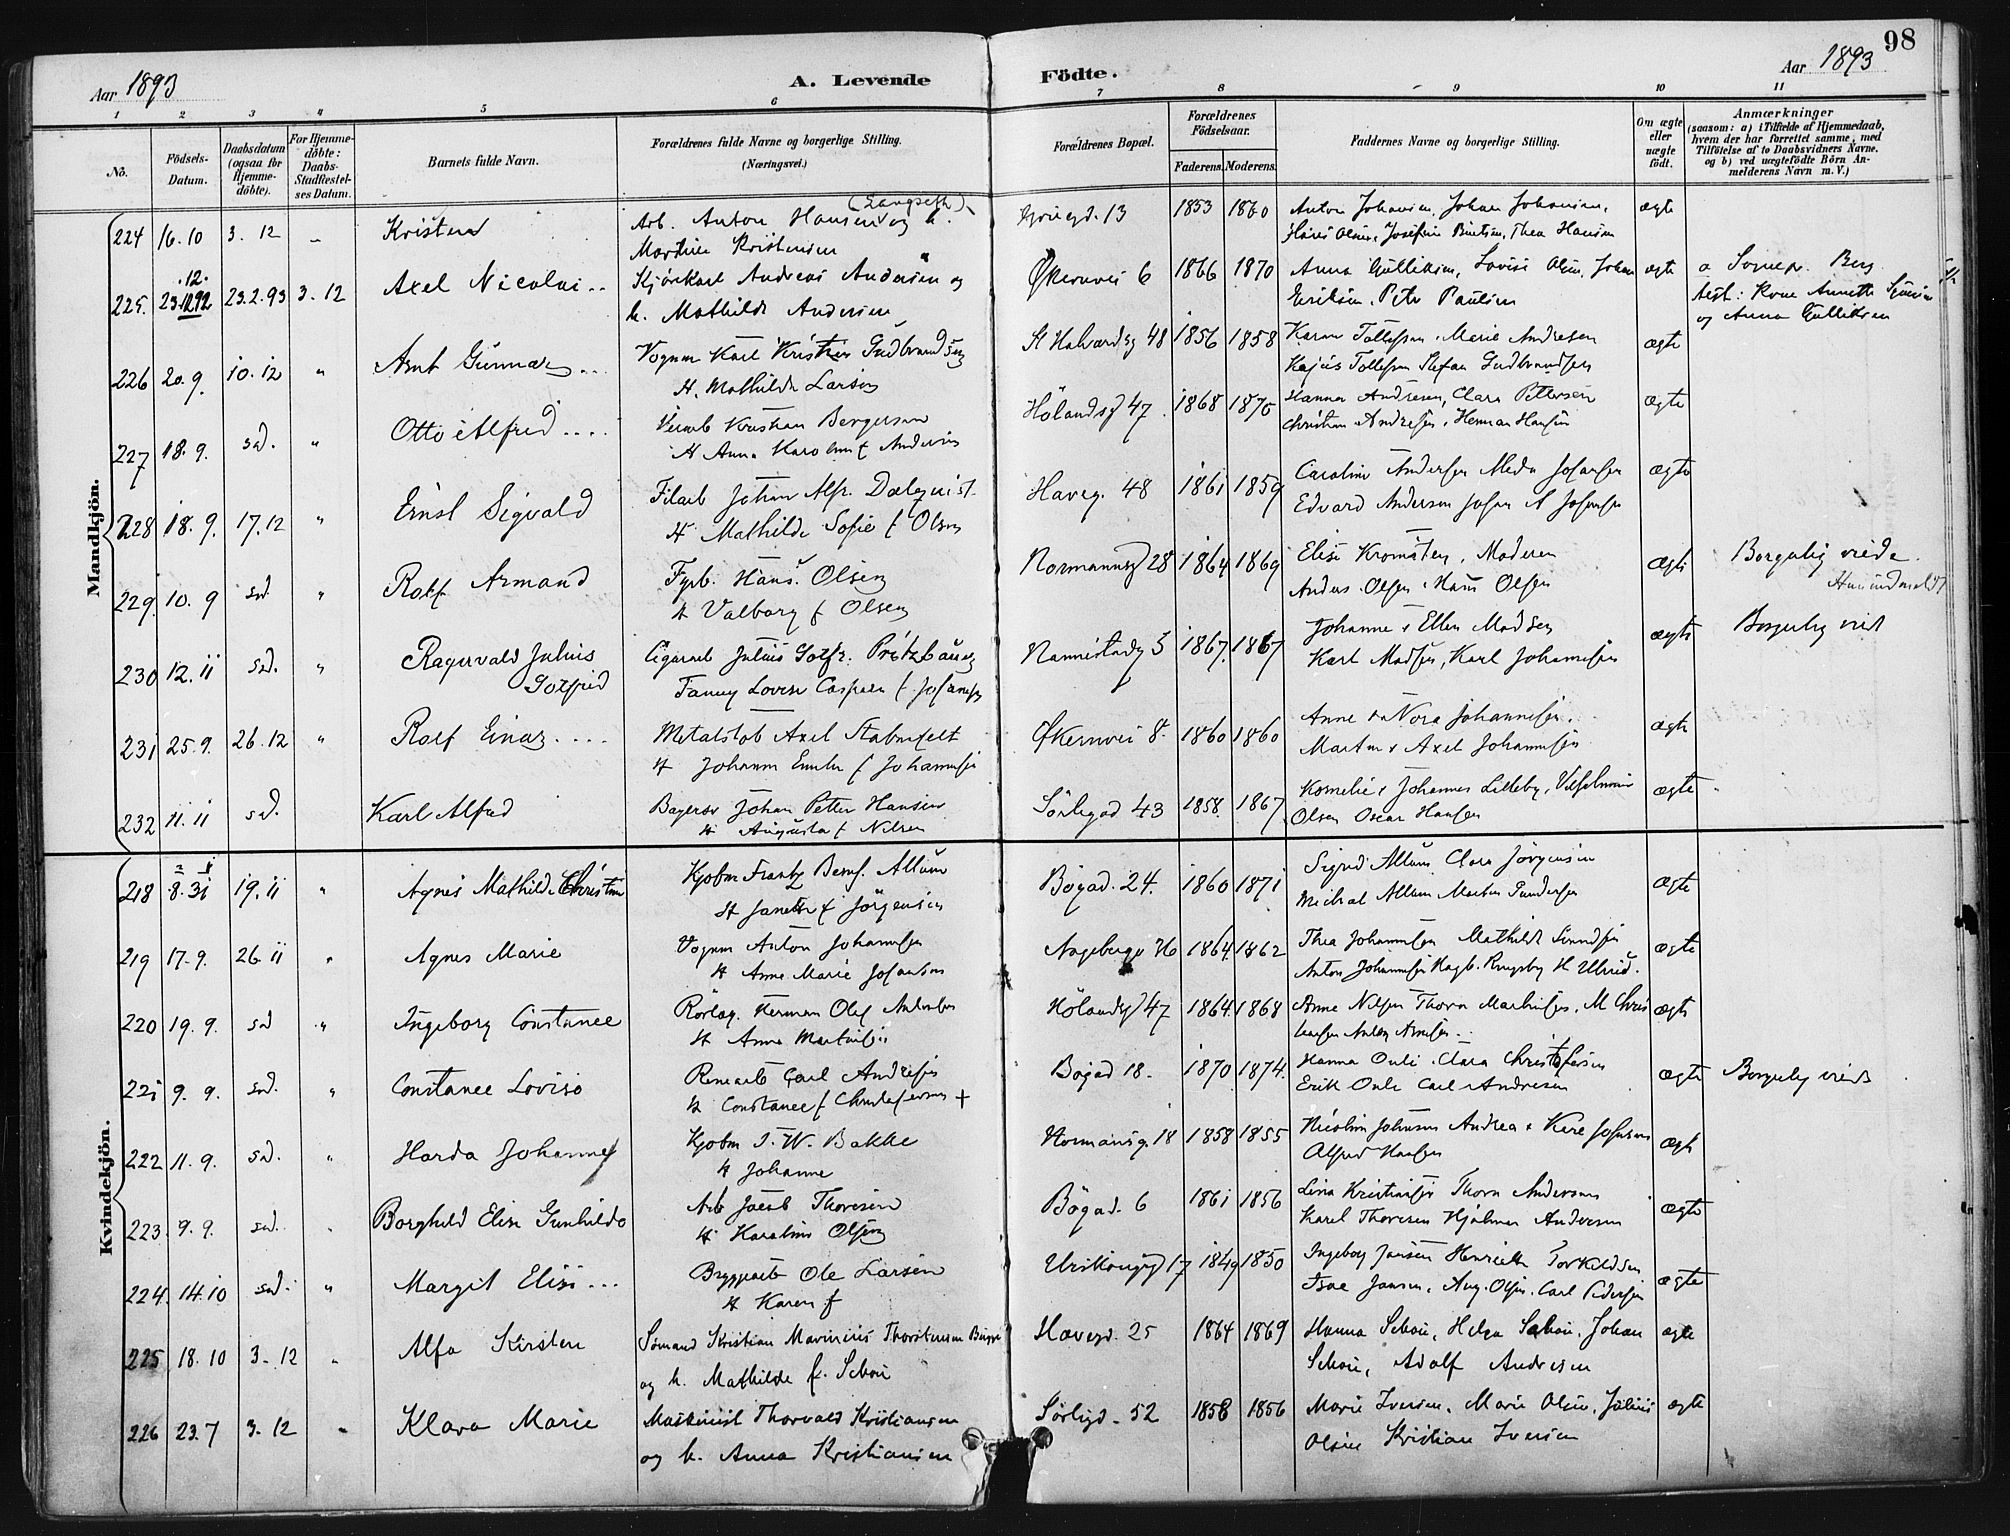 98
Aar 1893
A. Levende Födte.
Aar 1893
1 2 3 4 5 6 7 8 9 10 11
No.
Födsels-Datum.
Daabsdatum (ogsaa for Hjemmedöbte).
For Hjemmedöbte: Daabs Stadfestelses Datum.
Barnets fulde Navn.
Forældrenes fulde Navne og borgerlige Stilling. (Næringsvei.)
Forældrenes Bopæl.
Forældrenes Födselsaar.
Faderens. Moderens.
Faddernes Navne og borgerlige Stilling.
Om ægte eller uægte födt.
Anmærkninger
(saasom: a) i Tilfælde af Hjemmedaab, hvem der har forrettet samme, med Tilföielse af to Daabsvidners Navne, og b) ved uægtefödte Börn Anmelderens Navn m. V.)
Mandkjön.
224 16.10 3.12 „ Kristen Arb. Anton Hansen (Langseth) og h. 13 1853 1860 Anton Johansen, Johan Johansen, ægte
Martine Kristensen Olsen, Josefine Thea Hansen
225. 23.12.92 23.2.93 3.12 Axel Nicolai Kjørekarl Andreas Andersen og Økernvei 6 1866 1870 Anna Gulliksen, Lovise Olsen, Johan ægte a Sognepr. Berg
h. Mathilde Andersen Eriksen, Petr Paulsen test: Kone Annette
og Anna Gulliksen
226 20.9. 10.12 „ Arnt Gunnar Vognm Karl Kristian Gudbrandsen St Halvardsg 48 1856 1858 Karen Tollefsen, Marie Andresen ægte
H. Mathilde Larsen Kajus Tollefsen Stefan Gudbrandsen
227 18.9. sd. „ Otto Alfred Kristian Bergersen Hölandsg 47 1868 1870 Hanna Andresen, Clara Pettersen ægte
H Anna Karoline f Andersen Christian Andresen, Herman Hansen
228 18.9. 17.12 „ Ernst Sigvald Filarb Johan Alfr. Dalqvist Haveg. 48 1861 1859 Caroline Andersen Meda Johansen ægte
H Mathilde Sofie f Olsen Edvard Andersen Johan A Johansen
229. 10.9 sd. „ Rolf Armand Fyrb. Hans Olsen Normannsg 28 1864 1869 Elise Kromsten, Maderen ægte Borgerlig viede
H Valborg f Olsen Anders Olsen, Hans Olsen
230 12.11 sd. „ Ragnvald Julius Gotfred Cigararb Julius Gotfr. Pritzbauer Nannestadg 5 1867. 1867 Johanne & Ellen Madsen ægte Borgerlig viet
Fanny Lovise Caspara f Johansen Karl Madsen, Karl Johannesen
231 25.9. 26.12 „ Rolf Einar Metalstøb Axel Økernvei 8. 1860 1860 Anne & Nora Johannesen ægte
H Johanne Emilie f Johannesen Martin & Axel Johannesen
232 11.11 sd. Karl Alfred Johan Petter Hansen Sørligad 43 1858. 1867 Kornelie & Johannes Lilleby, Vilhelmine ægte
H Augusta f Nilsen Olsen Oscar Hansen
Kvindekjön.
218 8.31 19.11 „ Agnes Mathilde Christine Kjøbm Frantz Bernh. Allum Bøgad. 24. 1860 1871 Sigrid Allum Clara Jørgensen ægte
H Janette f Jørgensen Michal Allum Martin Gundersen
219 17.9. 26.11 „ Agnes Marie Vognm Anton Johannesen 1864. 1862 Thea Johannesen Mathilde ægte
H Anne Marie Johansen Anton Johannesen
220 19.9. sd „ Ingeborg Constance Rørlæg. Herman Olaf Hölandsg 47 1864. 1868 Anne Nilsen Thora Mathisen, M Chris ægte
H Anna tensen
221 9.9. sd. „ Constance Lovise Carl Andresen Bøgad 18. 1870 1874. Hanna Clara Christofersen ægte Borgerlig viede
H Constance f Christofersen + Erik Carl Andresen
222 11.9. sd. „ Harda Johanne Kjøbm J. W. Bakke Normansg. 18 1858 1855 Nicoline Johnsen Andrea & Johnsen ægte
H Johanne Alfred Hansen
223. 9.9. sd. „ Borghild Elise Gunhilda Arb Jacob Thoresen Bögad. 6 1861 1856 Lina Kristiansen Thora Andersen ægte
H Karoline Olsen Karel Thoresen Hjalmar Andersen
224. 14.10 sd. „ Margit Elise Bryggearb Ole Larsen Urskougsg 17 1849 1850 Ingeborg Jansen Henriette Torkildsen ægte
H Karen f Isac Jansen, Aug. Olsen, Carl Pedersen
225 18.10 3.12 „ Alfa Kirsten Sømand Kristian Marinius Thorstensen Havegd. 25 1864 1869 Hanna Schou, Helga Schou, Johan ægte
og h. Mathilde f. Schou Schou, Adolf Andresen
226 23.7 3.12 „ Klara Marie Maskinist Thorvald Kristiansen Sørligd. 52 1858 1856 Marie Iversen, Marie Olsen, Julius ægte
og h. Anna Kristiansen Olsen Kristian Iversen